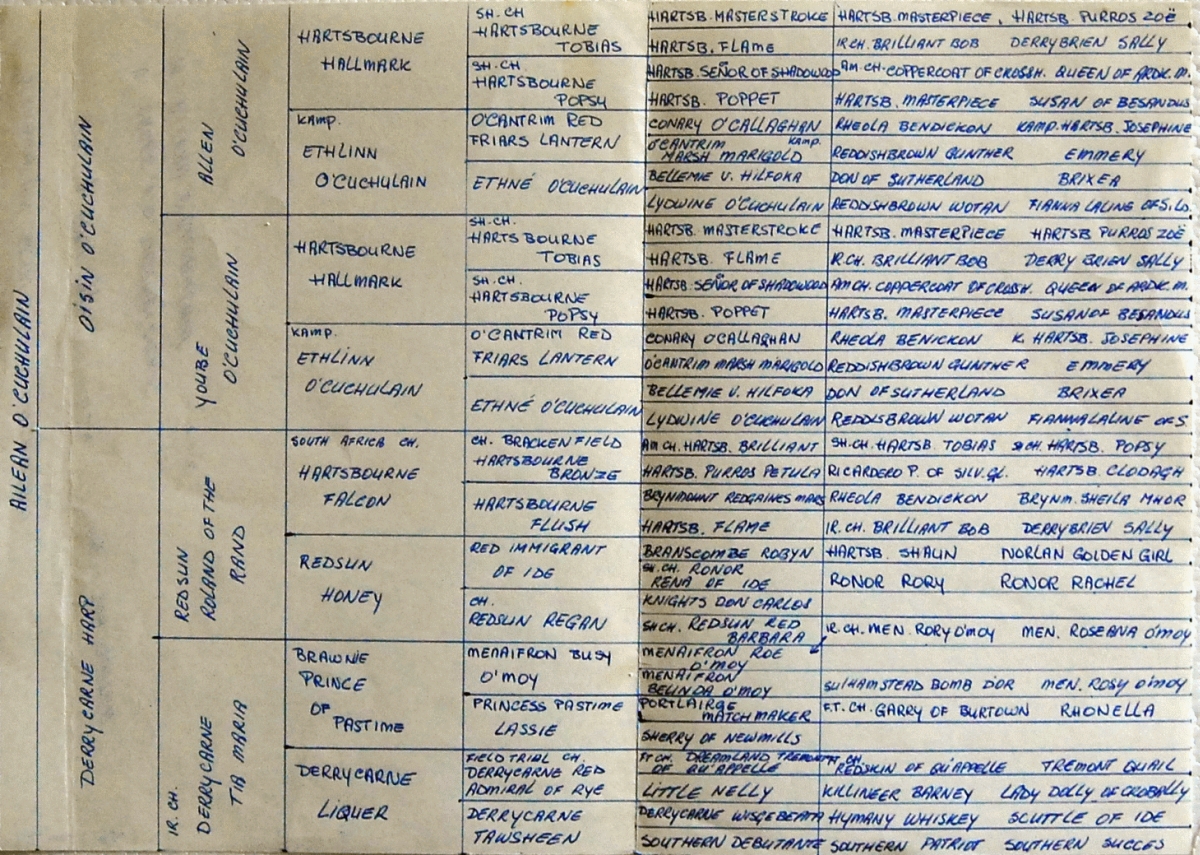 AILEAN O'CUCHULAIN
OISIN O'CUCHULAIN
DERRYCARNE HARP
ALLEN
O'CUCHULAIN
YOUBE
O'CUCHULAIN
REDSUN
ROLAND OF THE
RAND
IR. CH.
DERRYCARNE
TIA MARIA
HARTSBOURNE
HALLMARK
KAMP.
ETHLINN
O'CUCHULAIN
HARTSBOURNE
HALLMARK
KAMP.
ETHLINN
O'CUCHULAIN
SOUTH AFRICA CH.
HARTSBOURNE
FALCON
REDSUN
HONEY
BRAWNIE
PRINCE
OF
PASTIME
DERRYCARNE
LIQUER
SH. CH
HARTSBOURNE
TOBIAS
SH. CH.
HARTSBOURNE
POPSY
O'CANTRIM RED
FRIARS LANTERN
ETHNÉ O'CUCHULAIN
SH. CH.
HARTSBOURNE
TOBIAS
SH. CH.
HARTSBOURNE
POPSY
O'CANTRIM RED
FRIARS LANTERN
ETHNÉ O'CUCHULAIN
CH. BRACKENFIELD
HARTSBOURNE
BRONZE
HARTSBOURNE
FLUSH
RED IMMIGRANT
OF IDE
CH.
REDSUN REGAN
MENAIFRON BUSY
O'MOY
PRINCESS PASTIME
LASSIE
FIELD TRIAL CH.
DERRYCARNE RED
ADMIRAL OF RYE
DERRYCARNE
TAWSHEEN
HARTSB. MASTERSTROKE
HARTSB. FLAME
HARTSB. SEÑOR OF SHADOWOOD
HARTSB. POPPET
CONARY O'CALLAGHAN
O'CANTRIM KAMP.
MARSH MARIGOLD
BELLEMIE V. HILFOKA
LYDWINE O'CUCHULAIN
HARTSB. MASTERSTROKE
HARTSB. FLAME
HARTSB. SEÑOR OF SHADOWOOD
HARTSB. POPPET
CONARY O'CALLAGHAN
O'CANTRIM MARSH MARIGOLD
BELLEMIE V. HILFOKA
LYDWINE O'CUCHULAIN
AM CH. HARTSB. BRILLIANT
HARTSB. PURROS PETULA
BRYNMOUNT REDGAINES MARS
HARTSB. FLAME
BRANSCOMBE ROBYN
SH. CH. RONOR
RENA OF IDE
KNIGHTS DON CARLOS
SH CH. REDSUN RED
BARBARA
MENAIFRON ROE
O'MOY
MENAIFRON
BELINDA O'MOY
PORTLAIRGE
MATCHMAKER
SHERRY OF NEWMILLS
FT CH. DREAMLAND TREMONT
OF QU'APPELLE
LITTLE NELLY
DERRYCARNE
SOUTHERN DEBUTANTE
HARTSB. MASTERPIECE, HARTSB PURROS ZOË
IR.CH. BRILLIANT BOB DERRYBRIEN SALLY
AM. CH. COPPERCOAT OF CROSSH. QUEEN OF ARDK. M.
HARTSB. MASTERPIECE SUSAN OF BESANDUS
RHEOLA BENDICKON KAMP. HARTSB. JOSEPHINE
REDDISHBROWN GUNTHER EMMERY
DON OF SUTHERLAND BRIXEA
REDDISHBROWN WOTAN FIANNA LALINE OF S. LO.
HARTSB. MASTERPIECE HARTSB PURROS ZOË
IR.CH. BRILLIANT BOB DERRY BRIEN SALLY
AM CH. COPPERCOAT OF CROSSH. QUEEN OF ARDK. M.
HARTSB. MASTERPIECE SUSAN OF BESANDUS
RHEOLA BENICKON K. HARTSB. JOSEPHINE
REDDISHBROWN GUNTHER EMMERY
DON OF SUTHERLAND BRIXEA
REDDISBROWN WOTAN FIANNA LALINE OF S.
SH. CH. HARTSB. TOBIAS CH. HARTSB. POPSY
RICARDERO P. OF SILV. GL. HARTSB. CLODAGH
RHEOLA BENDICKON BRYNM. SHEILA MHOR
IR. CH. BRILLIANT BOB DERRYBRIEN SALLY
HARTSB. SHAUN NORLAN GOLDEN GIRL
RONOR RORY RONOR RACHEL
IR. CH. MEN. RORY O'MOY MEN. ROSEANA O'MOY
SULHAMSTEAD BOMB D'OR MEN. ROSY O'MOY
F.T. CH. GARRY OF BURTOWN RHONELLA
FT. CH
REDSKIN OF QU'APPELLE TREMONT QUAIL
KILLINEER BARNEY LADY DOLLY OF CROBALLY
HYMANY WHISKEY SCUTTLE OF IDE
SOUTHERN PATRIOT SOUTHERN SUCCES